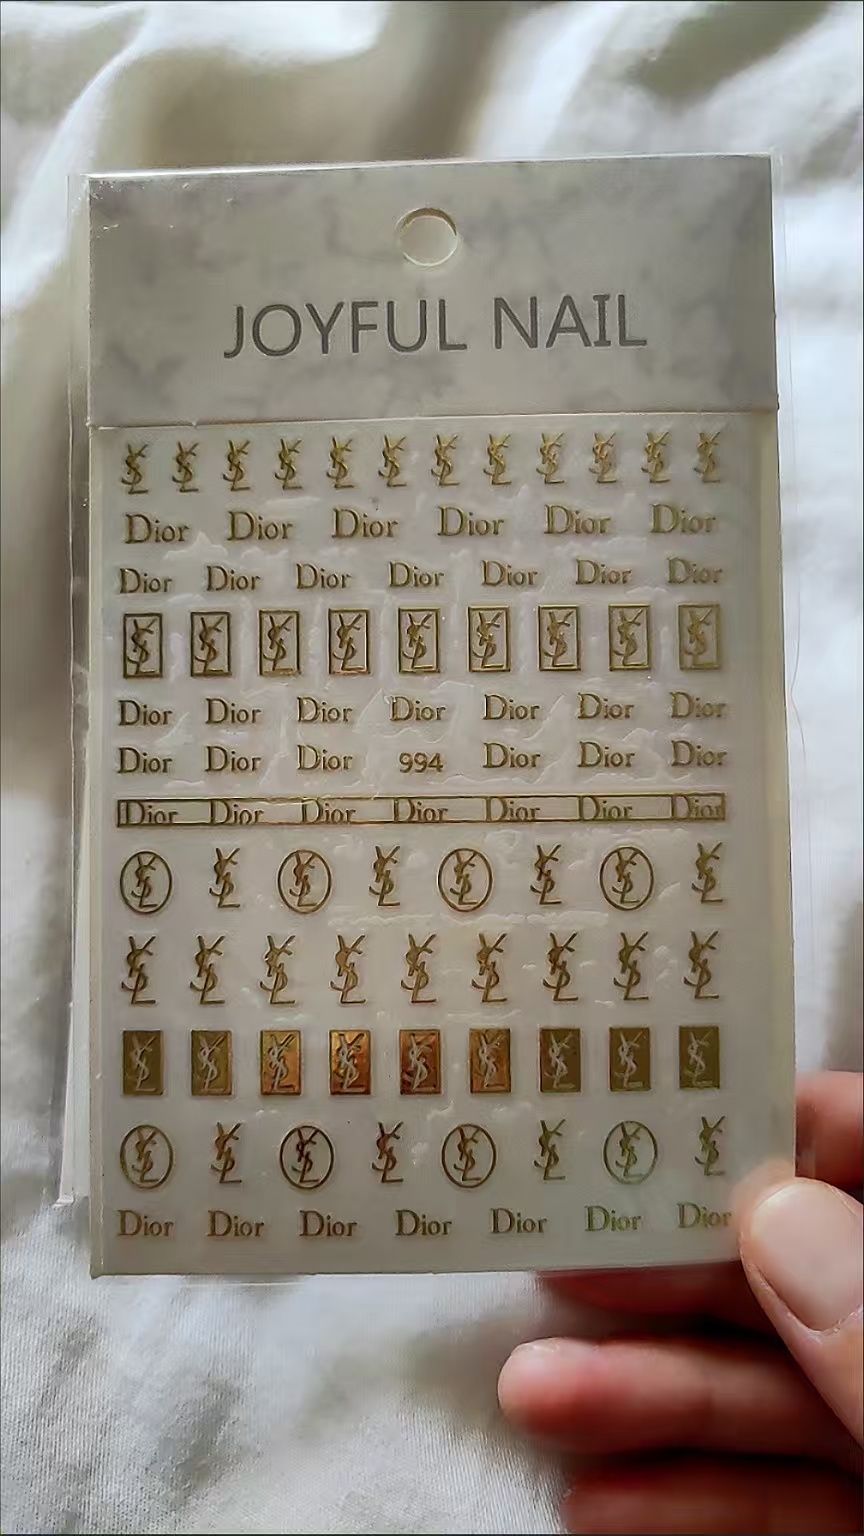 JOYFUL NAIL
YSL YSL YSL YSL YSL YSL YSL YSL YSL YSL YSL YSL
Dior Dior Dior Dior Dior Dior
Dior Dior Dior Dior Dior Dior Dior
YSL YSL YSL YSL YSL YSL YSL YSL YSL
Dior Dior Dior Dior Dior Dior Dior
Dior Dior Dior 994 Dior Dior Dior
Dior Dior Dior Dior Dior Dior Dior
YSL YSL YSL YSL YSL YSL YSL YSL
YSL YSL YSL YSL YSL YSL YSL YSL YSL
YSL YSL YSL YSL YSL YSL YSL YSL YSL
YSL YSL YSL YSL YSL YSL YSL YSL
Dior Dior Dior Dior Dior Dior Dior